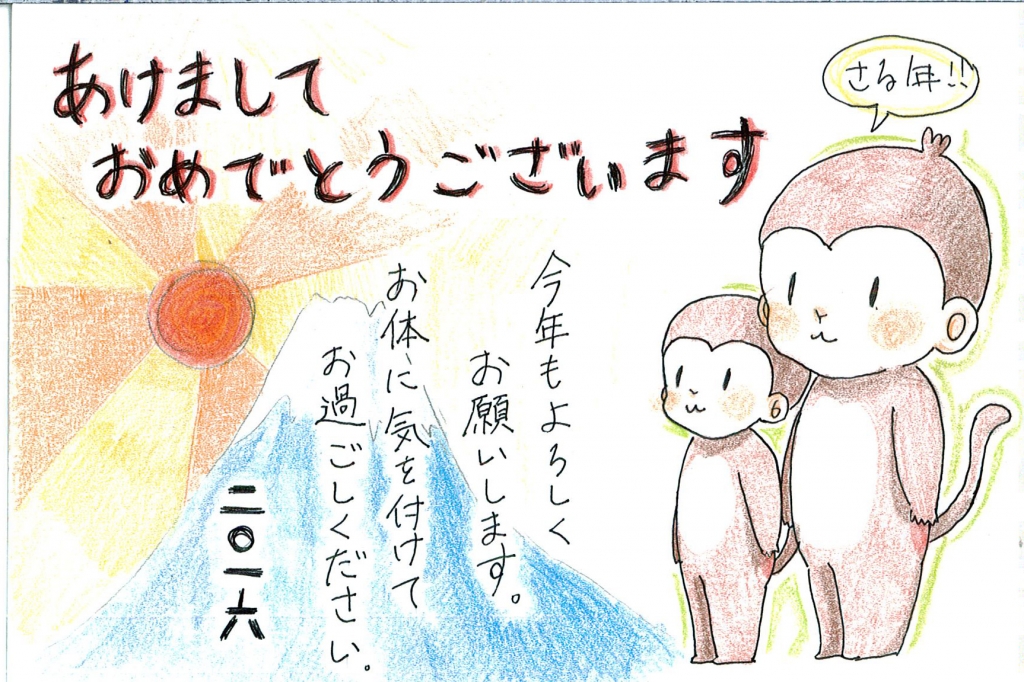 あけまして
おめでとうございます
さる年!!
今年もよろしく
お願いします。
お体に気を付けて
お過ごしください。
二〇一六